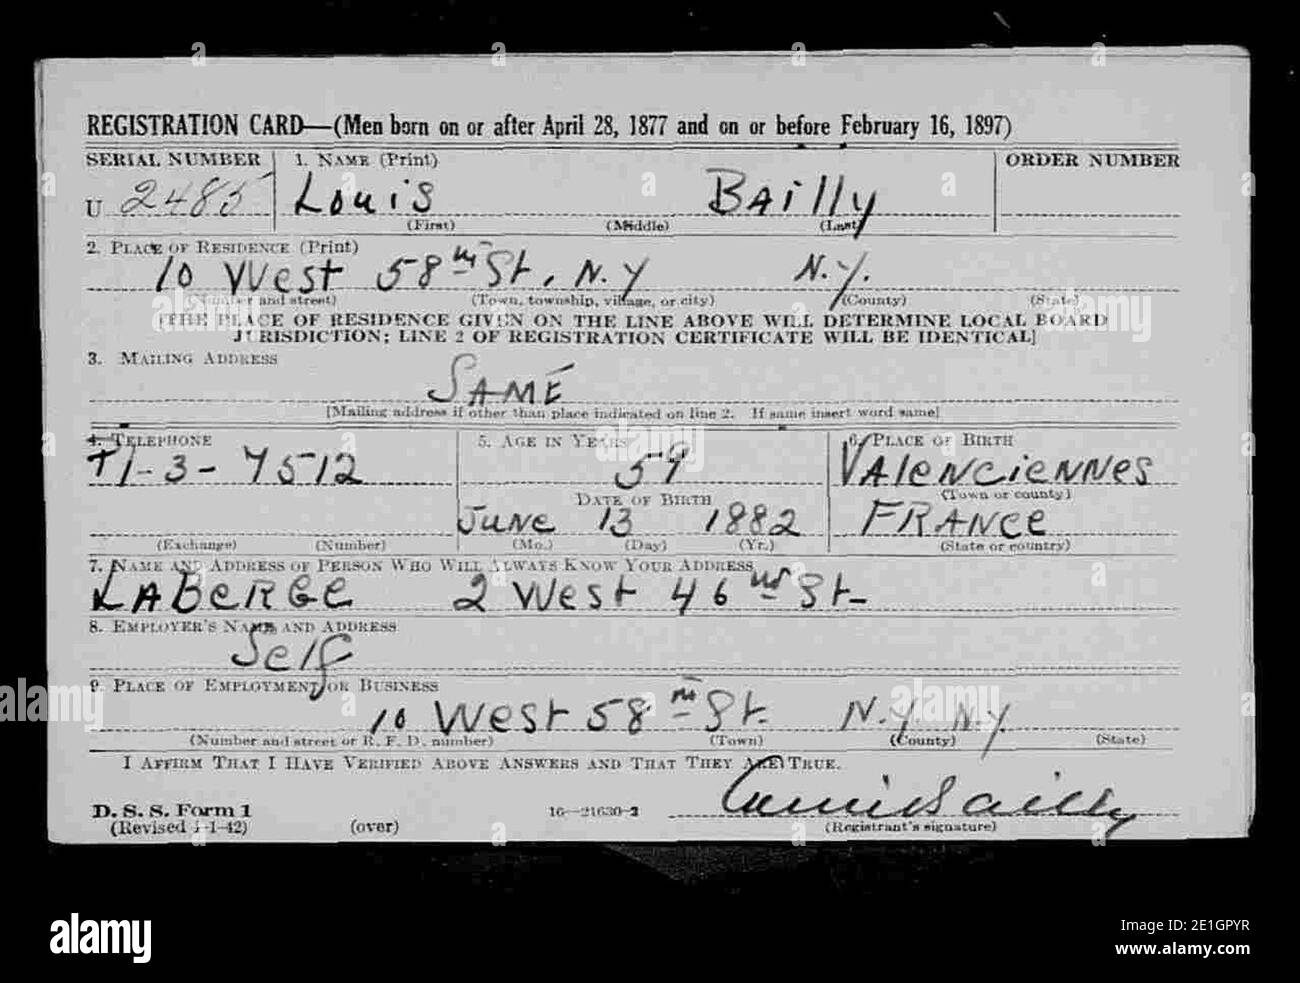 REGISTRATION CARD—(Men born on or after April 28, 1877 and on or before February 16, 1897)
SERIAL NUMBER 1. NAME (Print) ORDER NUMBER
U 2485 Louis Bailly
(First) (Middle) (Last)
2. PLACE OF RESIDENCE (Print)
10 West 58 th St, N.Y N.Y.
(Number and street) (Town, township, village, or city) (County) (State)
[THE PLACE OF RESIDENCE GIVEN ON THE LINE ABOVE WILL DETERMINE LOCAL BOARD
JURISDICTION; LINE 2 OF REGISTRATION CERTIFICATE WILL BE IDENTICAL]
3. MAILING ADDRESS
SAME
[Mailing address if other than place indicated on line 2. If same insert word same]
4. TELEPHONE 5. AGE IN YEARS 6. PLACE OF BIRTH
-3-7512 59 VAleNcieNNes
DATE OF BIRTH (Town or county)
June 13 1882 FRANce
(Exchange) (Number) (Mo.) (Day) (Yr.) (State or country)
7. NAME AND ADDRESS OF PERSON WHO WILL ALWAYS KNOW YOUR ADDRESS
LABeRGe 2 West 46 St-
8. EMPLOYER'S NAME AND ADDRESS
Self
9. PLACE OF EMPLOYMENT OR BUSINESS
10 West 58 St. N.Y. N.Y.
(Number and street or R. F. D. number) (Town) (County) (State)
I AFFIRM THAT I HAVE VERIFIED ABOVE ANSWERS AND THAT THEY ARE TRUE.
D. S. S. Form 1 16—21630-2 Louis Bailly
(Revised 4-1-42) (over) (Registrant's signature)
alamy
Image ID: 2E1GPYR
www.alamy.com